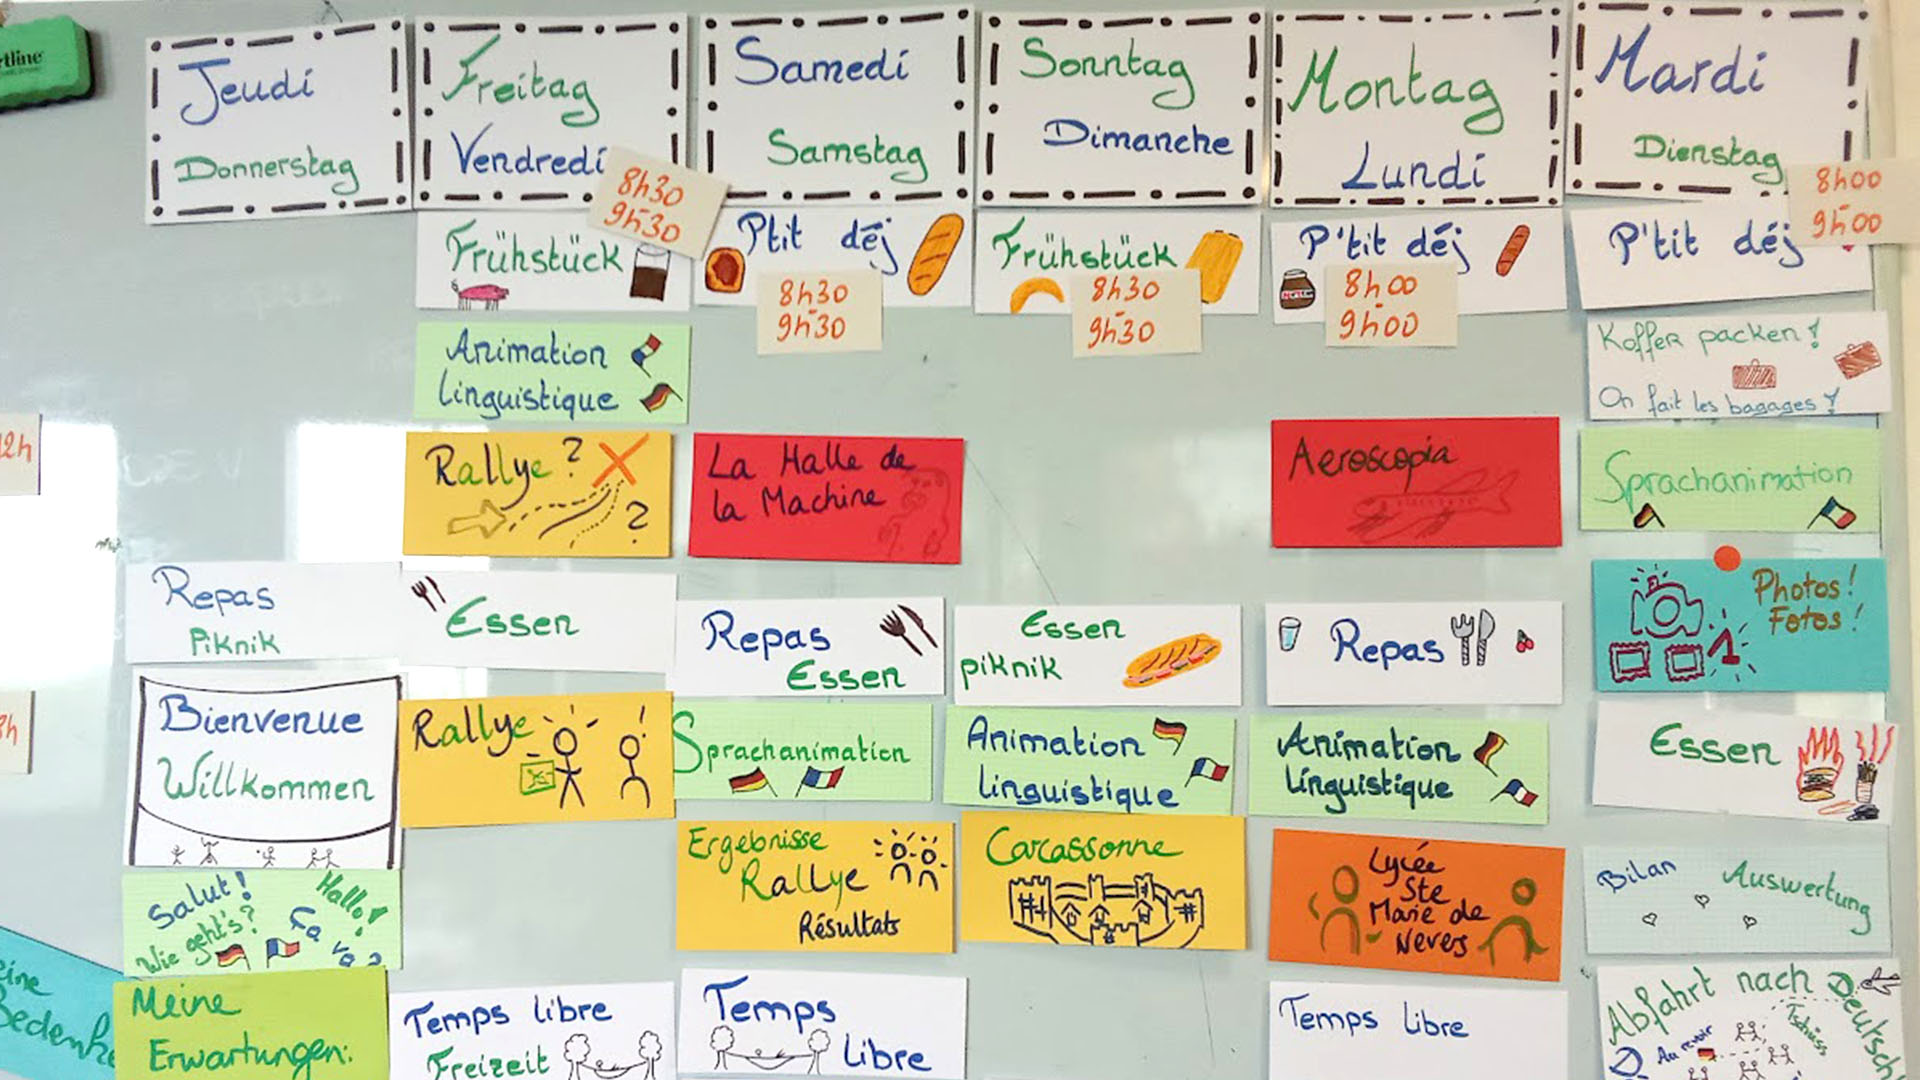 Jeudi
Donnerstag
Freitag
Vendredi
Samedi
Samstag
Sonntag
Dimanche
Montag
Lundi
Mardi
Dienstag
8h30
9h30
8h00
9h00
Frühstück
P'tit déj
8h30
9h30
Frühstück
8h30
9h30
P'tit déj
8h00
9h00
P'tit déj
Animation
linguistique
Koffer packen!
On fait les bagages!
Rallye ?
?
La Halle de
la Machine
Aeroscopia
Sprachanimation
Repas
Piknik
Essen
Repas
Essen
Essen
piknik
Repas
Photos!
Fotos!
Bienvenue
Willkommen
Rallye
Sprachanimation
Animation
linguistique
Animation
linguistique
Essen
Salut!
Hallo!
Wie geht's?
Ça va?
Ergebnisse
Rallye
Résultats
Carcassonne
Lycée
Ste
Marie de
Nevers
Bilan
Auswertung
Meine
Erwartungen:
Temps libre
Freizeit
Temps
libre
Temps libre
Abfahrt nach
Au revoir
Tschüss